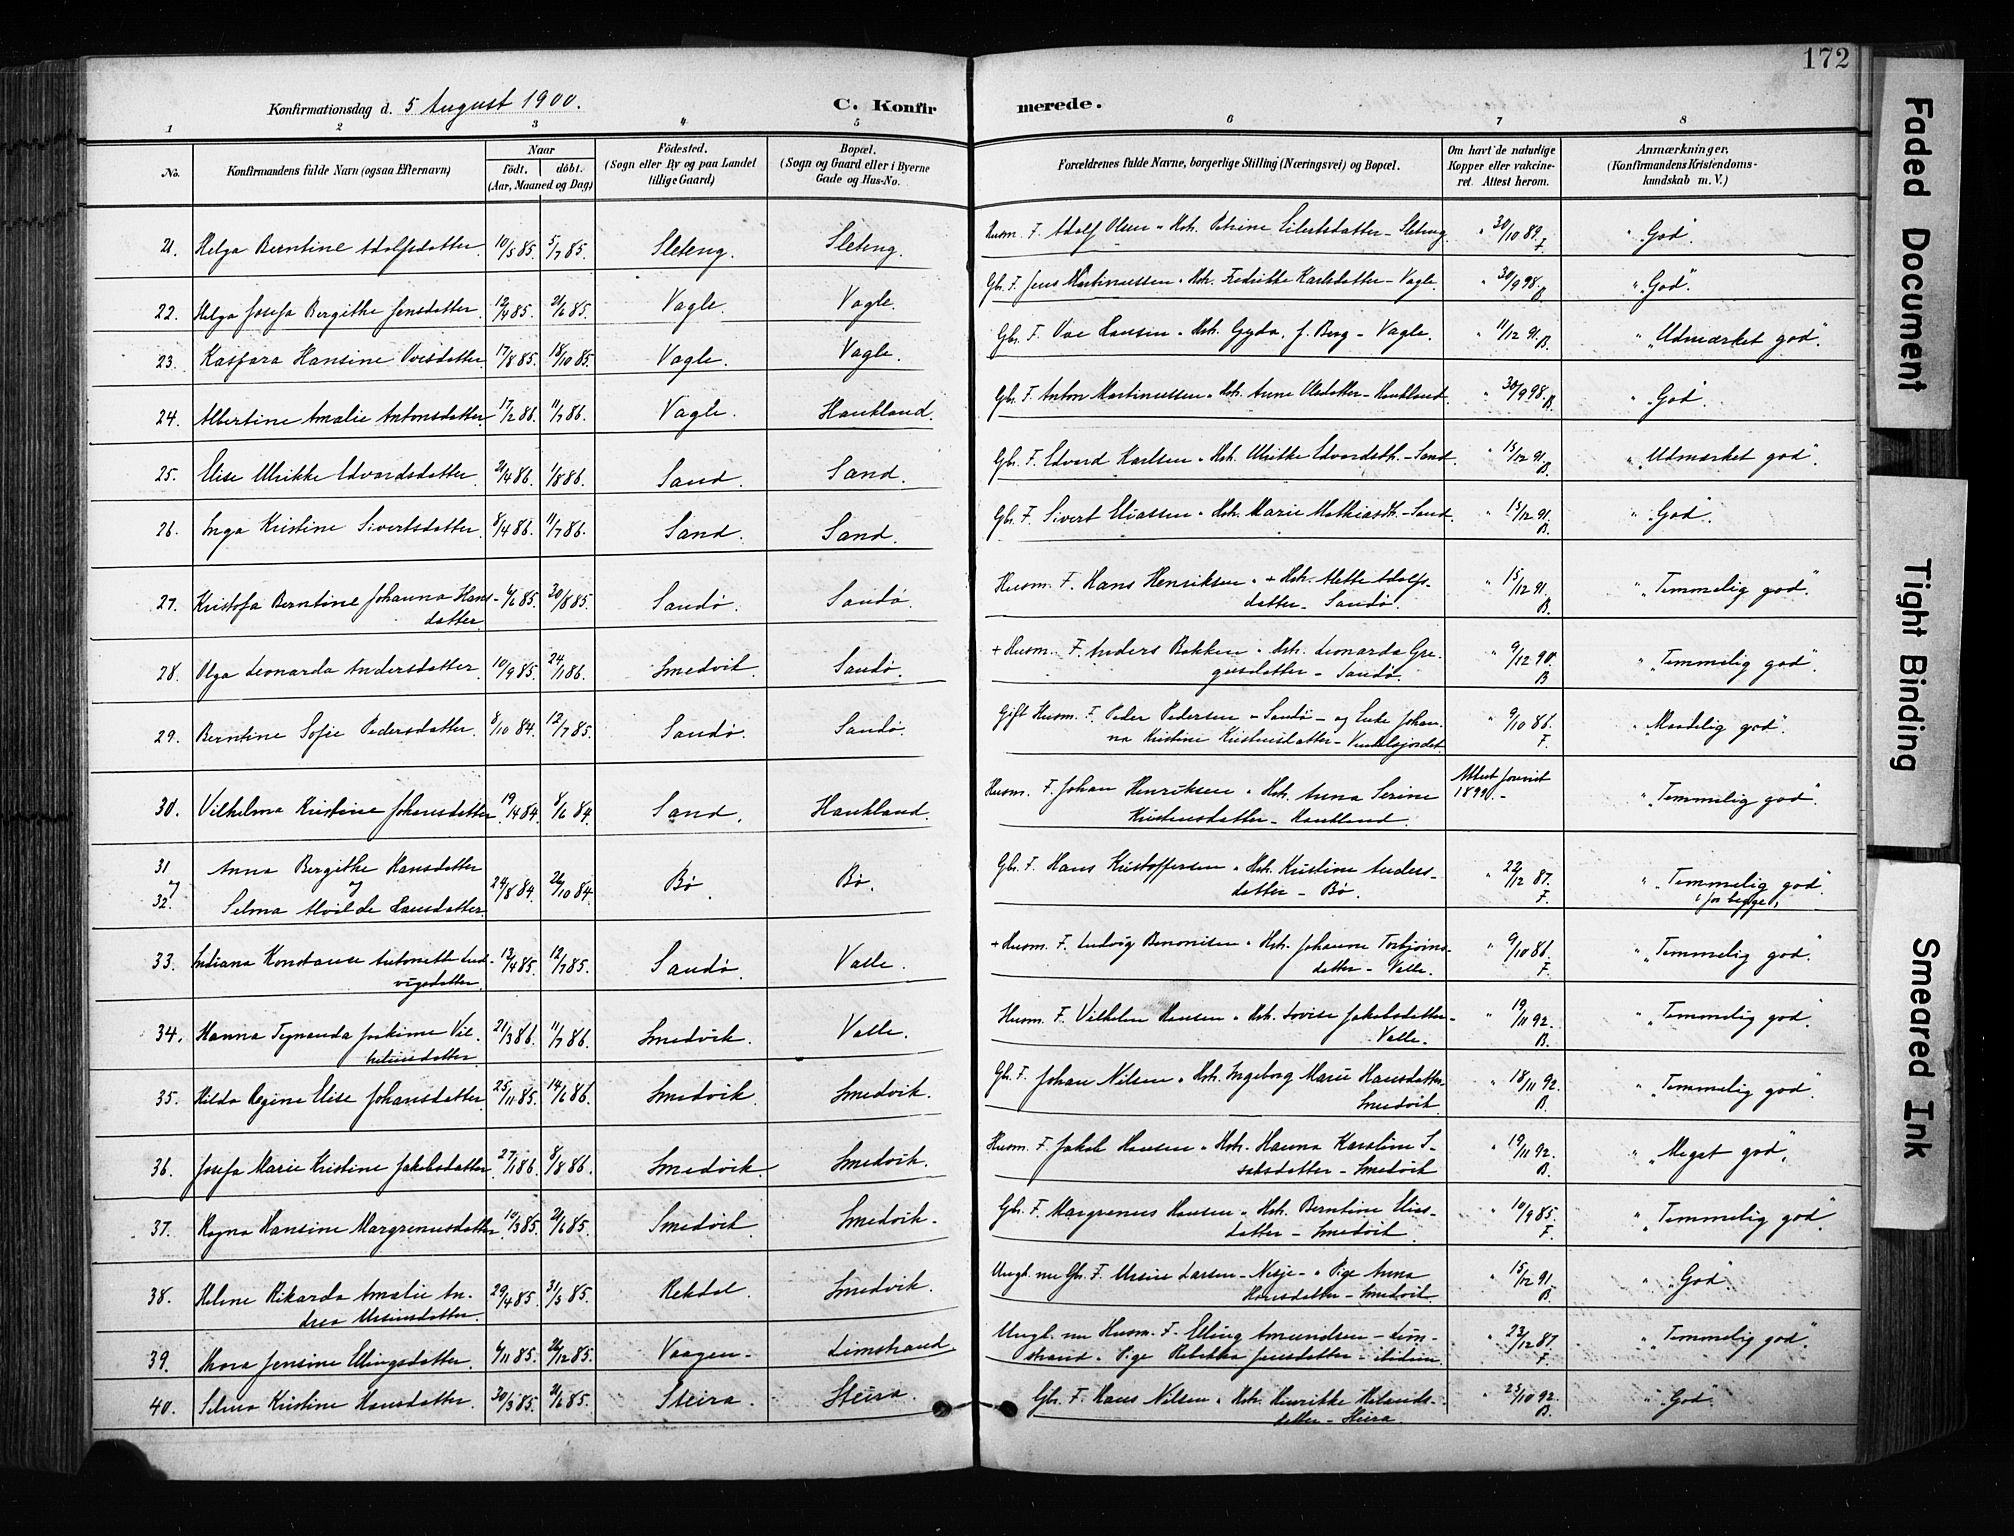 172
Konfirmationsdag d. 5 August 1900.
C. Konfirmerede.
1 2 3 4 5 6 7 8
No. Konfirmandens fulde Navn (ogsaa Efternavn) Naar Födt, döbt. (Aar, Maaned og Dag) Födested. (Sogn eller By og paa Landet tillige Gaard) Bopæl. (Sogn og Gaard eller i Byerne Gade og Hus-No. Forældrenes fulde Navne, borgerlige Stilling (Næringsvei) og Bopæl. Om havt de naturlige Kopper eller vakcineret. Attest herom. Anmærkninger, (Konfirmandens Kristendomskundskab m. V.)
21. Helga Berntine Adolfsdatter 10/5 85. 5/7 85. Sleteng. Sleteng. Husm. F. Adolf Olsen " Hstr. Petrine Eilertsdatter - Sleteng. " 30/10 89. F. " God".
22. Helga Josefa Bergithe Jensdatter. 12/4 85. 21/6 85. Vagle. Vagle. Gbr. F. Jens Martinussen " Hstr. Fredrikke Karlsdatter - Vagle. " 30/9 98. B. " "God".
23. Kaspara Hansine Ovesdatter. 17/8 85. 18/10 85. Vagle. Vagle. Gbr. F. Ove Hansen " Hstr. Gyda, f. Berg - Vagle. " 11/12 91. B. " "Udmærket god".
24. Albertine Amalie Antonsdatter 17/2 86. 11/7 86. Vagle. Haukland. Gbr. F. Anton Martinussen " Hstr. Anne Olsdatter - Haukland. " 30/9 98. B. " God".
25. Elise Ulrikke Edvardsdatter 21/4 86. 1/8 86. Sand. Sand. Gbr. F. Edvard Karlsen " Hstr. Ulrikke Edvardsdtr. - Sand. " 15/12 91. B. " "Udmærket god".
26. Inga Kristine Sivertsdatter. 8/4 86. 11/7 86. Sand. Sand. Gbr. F. Sivert Eliassen " Hstr. Marie Mathiasdtr. - Sand. " 15/12 91. B. " God".
27. Kristofa Berntine Johanna Hansdatter. 4/6 85. 30/8 85. Sandö. Sandö. Husm. F. Hans Henriksen " + Hstr. Mette Adolfsdatter - Sandö. " 15/12 91. B. " "Temmelig god".
28. Olga Leonarda Andersdatter 10/9 85. 24/1 86. Smedvik Sandö. + Husm. F. Anders Bakken " Hstr. Leonarda Gregersdatter - Sandö. " 9/12 90. B " "Temmelig god".
29. Berntine Sofie Pedersdatter. 8/10 84. 12/7 85. Sandö. Sandö. Gift Husm. F. Peder Pedersen - Sandö - og Enke Johanna Kristine Kristensdatter - " 9/10 86. F. " "Maadelig god".
30. Vilhelma Kristine Johansdatter. 19/4 84. 8/6 84. Sand. Haukland. Husm. F. Johan Henriksen " Hstr. Anna Serine Kristensdatter - Haukland. Attest forevist 1899. - " "Temmelig god".
31 og 32. Anna Bergithe Hansdatter og Selma Alvilde Hansdatter 24/8 84. 26/10 84. Bö. Bö. Gbr. F. Hans Kristoffersen " Hstr. Kristine Andersdatter - Bö. " 22/12 87. F. " "Temmelig god". for begge.
33. Indiana Konstance Antonette Ludvigsdatter. 12/4 85. 12/7 85. Sandö. Valle. + Husm. F. Ludvig Benonisen " Hstr. Johanne Torbjörnsdatter - Valle. " 9/10 86. F. " "Temmelig god".
34. Hanna Joakime Vilhelmsdatter 21/3 86. 11/7 86. Smedvik. Valle. Husm. F. Vilhelm Hansen " Hstr. Lovise Jakobsdatter - Valle. " 19/11 92. B. " "Temmelig god".
35. Hilda Regine Elise Johansdatter. 25/11 85. 14/6 86. Smedvik. Smedvik. Gbr. F. Johan Nilsen " Hstr. Ingeborg Marie Hansdatter Smedvik. " 18/11 92. B. " "Temmelig god".
36. Josefa Marie Kristine Jakobsdatter 27/1 86. 8/8 86. Smedvik. Smedvik. Husm. F. Jakob Hansen " Hstr. Hanna Karoline Isaksdatter - Smedvik " 19/11 92. B. " "Meget god".
37. Ragna Hansine Margrenusdatter 10/3 85. 21/6 85. Smedvik Smedvik. Gbr. F. Margrenus Hansen " Hstr. Berntine Eliasdatter - Smedvik. " 10/9 85. F. " "Temmelig god".
38. Helene Rikarda Amalie Andrea Ursinsdatter. 29/4 85. 31/5 85. Rekdal. Smedvik. Ungk. nu Gbr. F. Ursin Larsen - Nesje - " Pige Anna Hansdatter - Smedvik. " 15/12 91. B. " "God".
39. Thora Jensine Ellingsdatter. 6/11 85. 26/12 85. Vaagen - Limstrand. Ungk. nu Husm. F. Elling Amundsen - Limstrand " Pige Rebekka Jensdatter - ibidem. " 23/12 87. F. " "Temmelig god".
40. Selma Kristine Hansdatter. 30/3 85. 21/6 85. Steira. Steira. Gbr. F. Hans Nilsen " Hstr. Henrikke datter - Steira. " 25/10 92. B. " "God".
Faded Document
Tight Binding
Smeared Ink